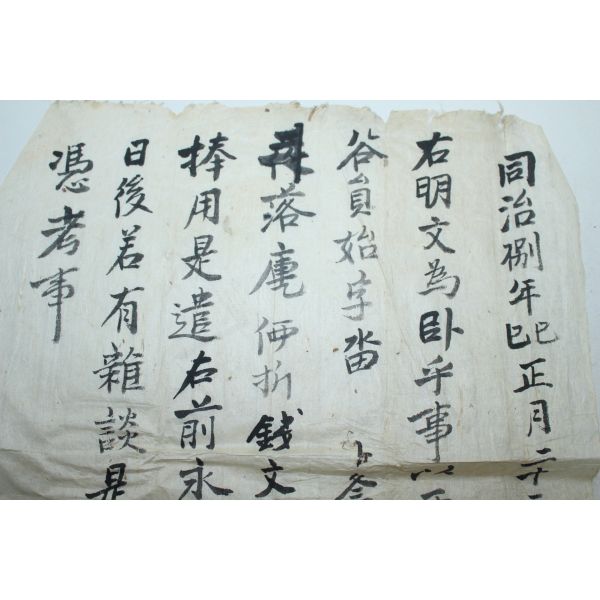 同治捌年己巳正月二十
右明文為臥乎事
谷員始字畓
落庹価折錢文
捧用是遣右前永
日後若有雜談是
憑考事